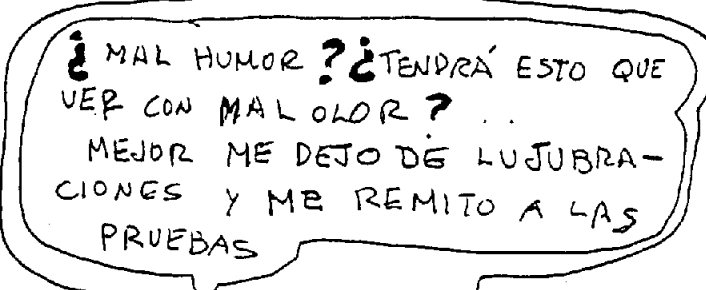 ¿ MAL HUMOR ? ¿TENDRÁ ESTO QUE
VER CON MAL OLOR ? . .
MEJOR ME DEJO DE LUJUBRA-
CIONES Y ME REMITO A LAS
PRUEBAS